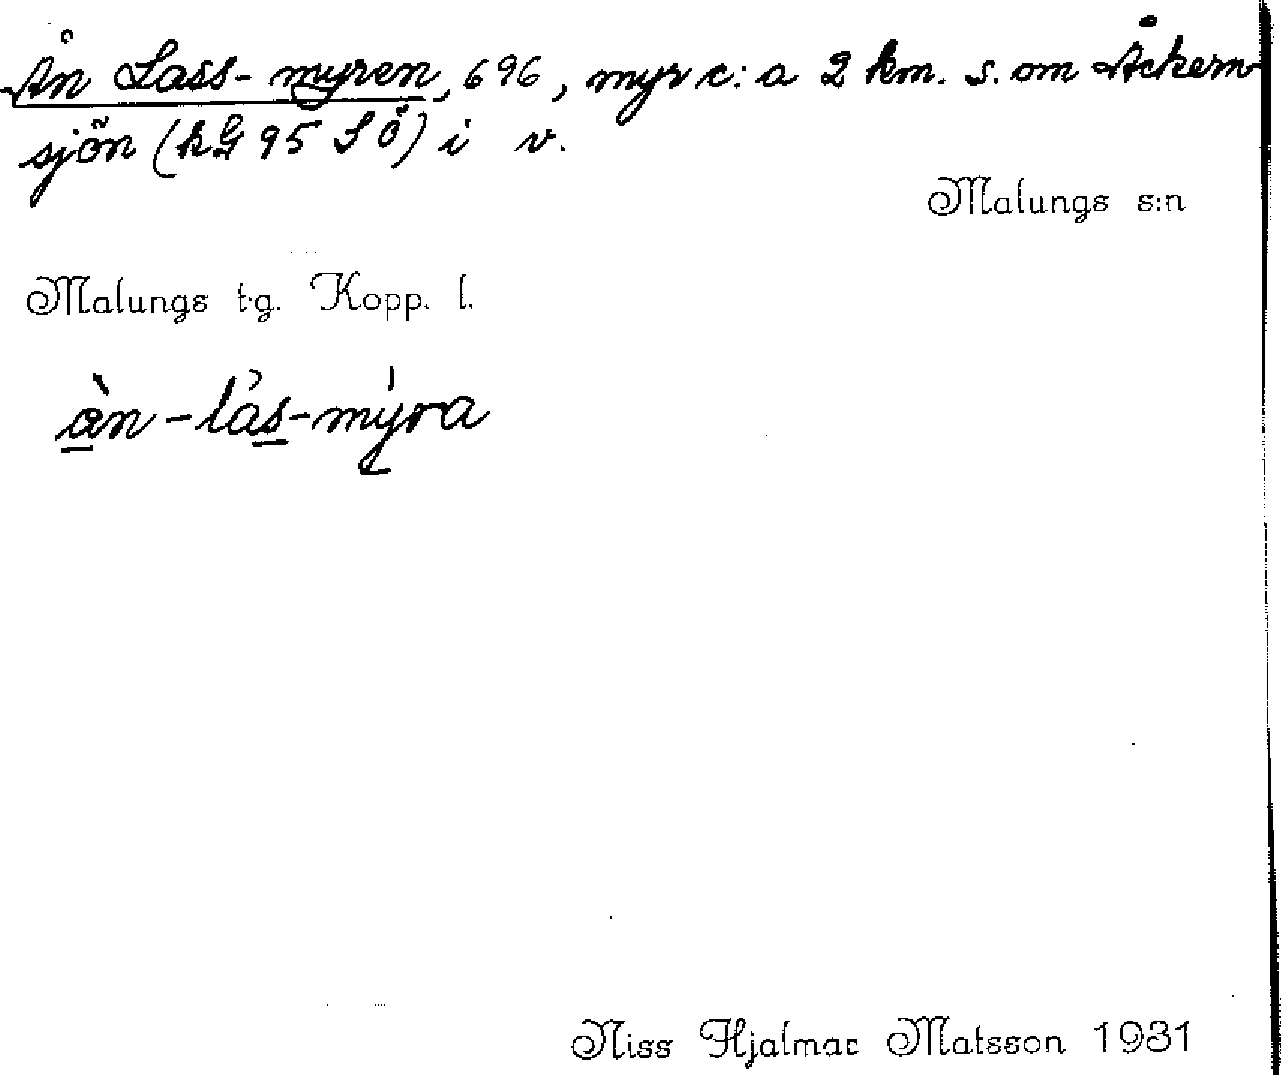 Ån Lass-myren, 696, myr c:a 2 km. s. om Åckern-
sjön (kG 95 S Ö) i v.
Malungs s:n
Malungs t.g. Kopp. l.
àn-lás-mýra
Niss Hjalmar Matsson 1931